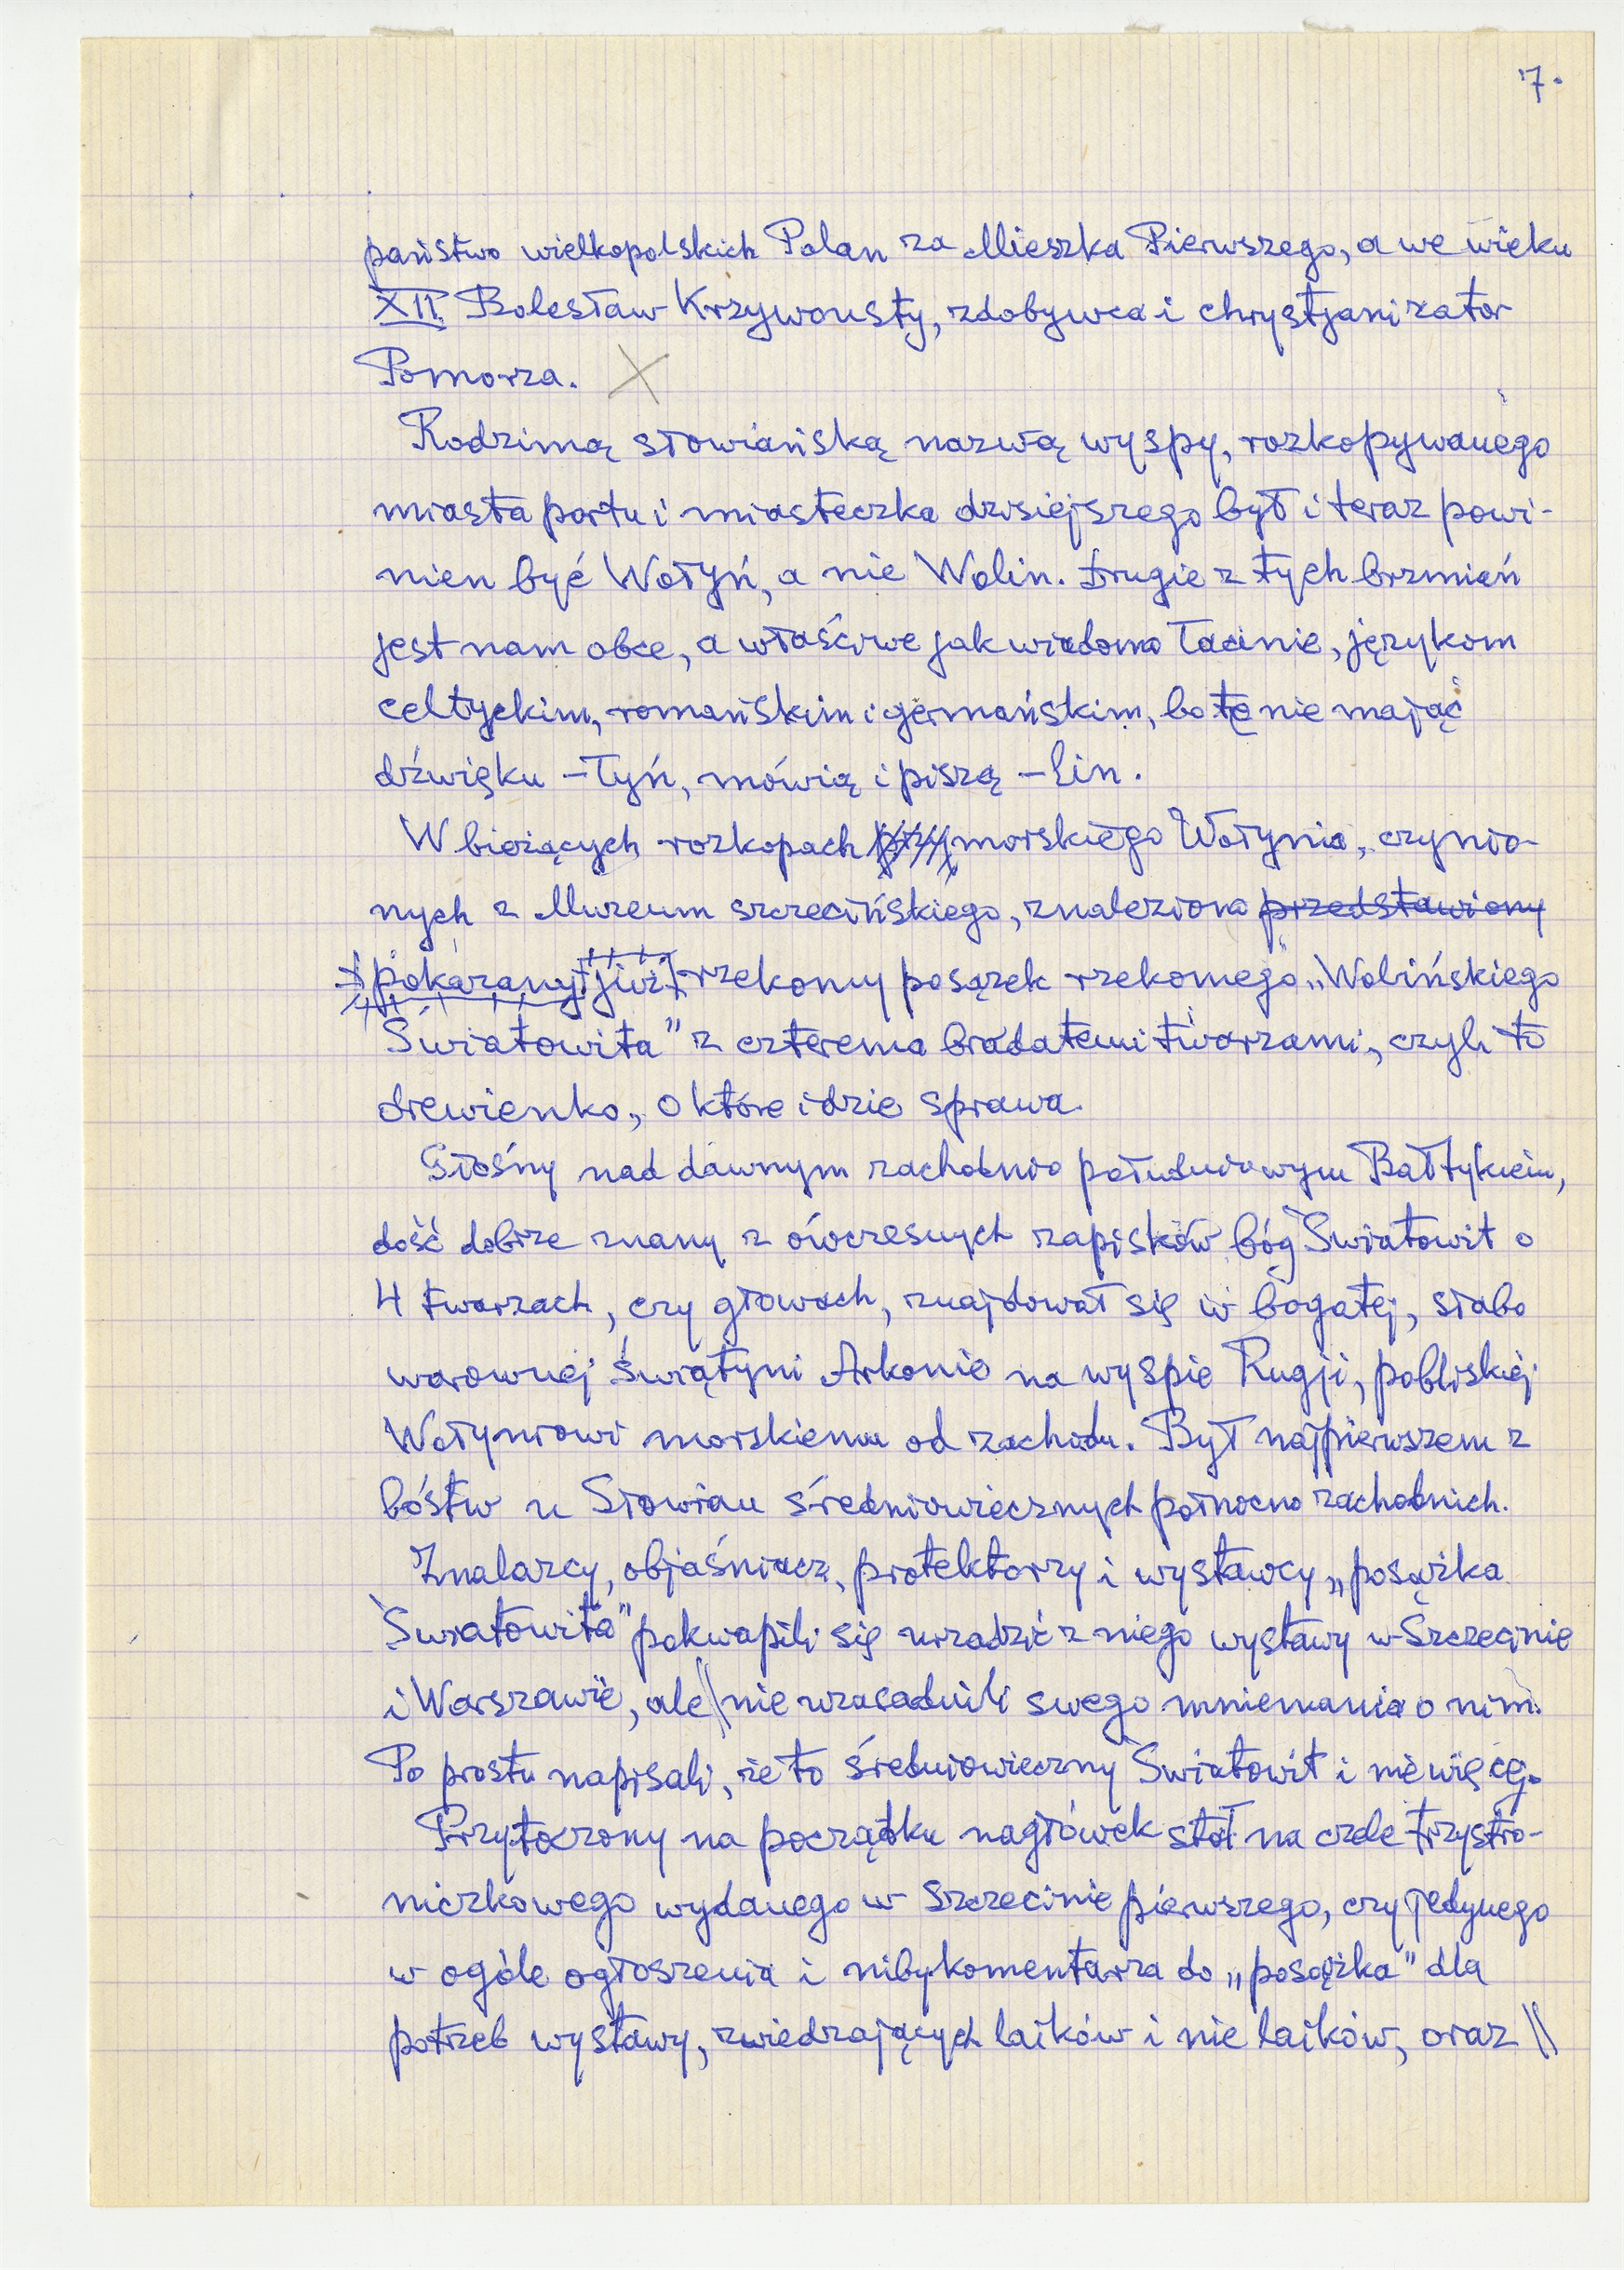 7.
państwo wielkopolskich Polan za Mieszka Pierwszego, a we wieku
XII Bolesław Krzywousty, zdobywca i chrystjanizator
Pomorza.
Rodzimą słowiańską nazwą wyspy, rozkopywanego
miasta portu i miasteczka dzisiejszego był i teraz powi-
nien być Wołyń, a nie Wolin. Drugie z tych brzmień
jest nam obce, a właściwe jak wiadomo łacinie, językom
celtyckim, romańskim i germańskim, bo te nie mając
dźwięku –łyń, mówią i piszą –lin.
W bieżących rozkopach przy morskiego Wołynia, czynio-
nych z Muzeum szczecińskiego, znaleziono przedstawiony
pokazany już rzekomy posążek rzekomego „Wolińskiego
Światowita” z czterema bradatemi twarzami, czyli to
drewienko, o które idzie sprawa.
Głośny nad dawnym zachodnio południowym Bałtykiem,
dość dobrze znany z ówczesnych zapisków bóg Światowit o
4 twarzach, czy głowach, znajdował się w bogatej, słabo
warownej świątyni Arkonie na wyspie Rugji, pobliskiej
Wołyniowi morskiemu od zachodu. Był najpierwszem z
bóstw u Słowian średniowiecznych północno zachodnich.
Znalazcy, objaśniacz, protektorzy i wystawcy „posążka
Światowita” pokwapili się urządzić z niego wystawy w Szczecinie
i Warszawie, ale || nie uzasadnili swego mniemania o nim.
Po prostu napisali, że to średniowieczny Światowit i nie więcej.
Przytoczony na początku nagłówek stoł na czele trzystro-
niczkowego wydanego w Szczecinie pierwszego, czy jedynego
w ogóle ogłoszenia i nibykomentarza do „posążka” dla
potrzeb wystawy, zwiedzających laików i nie laików, oraz ||